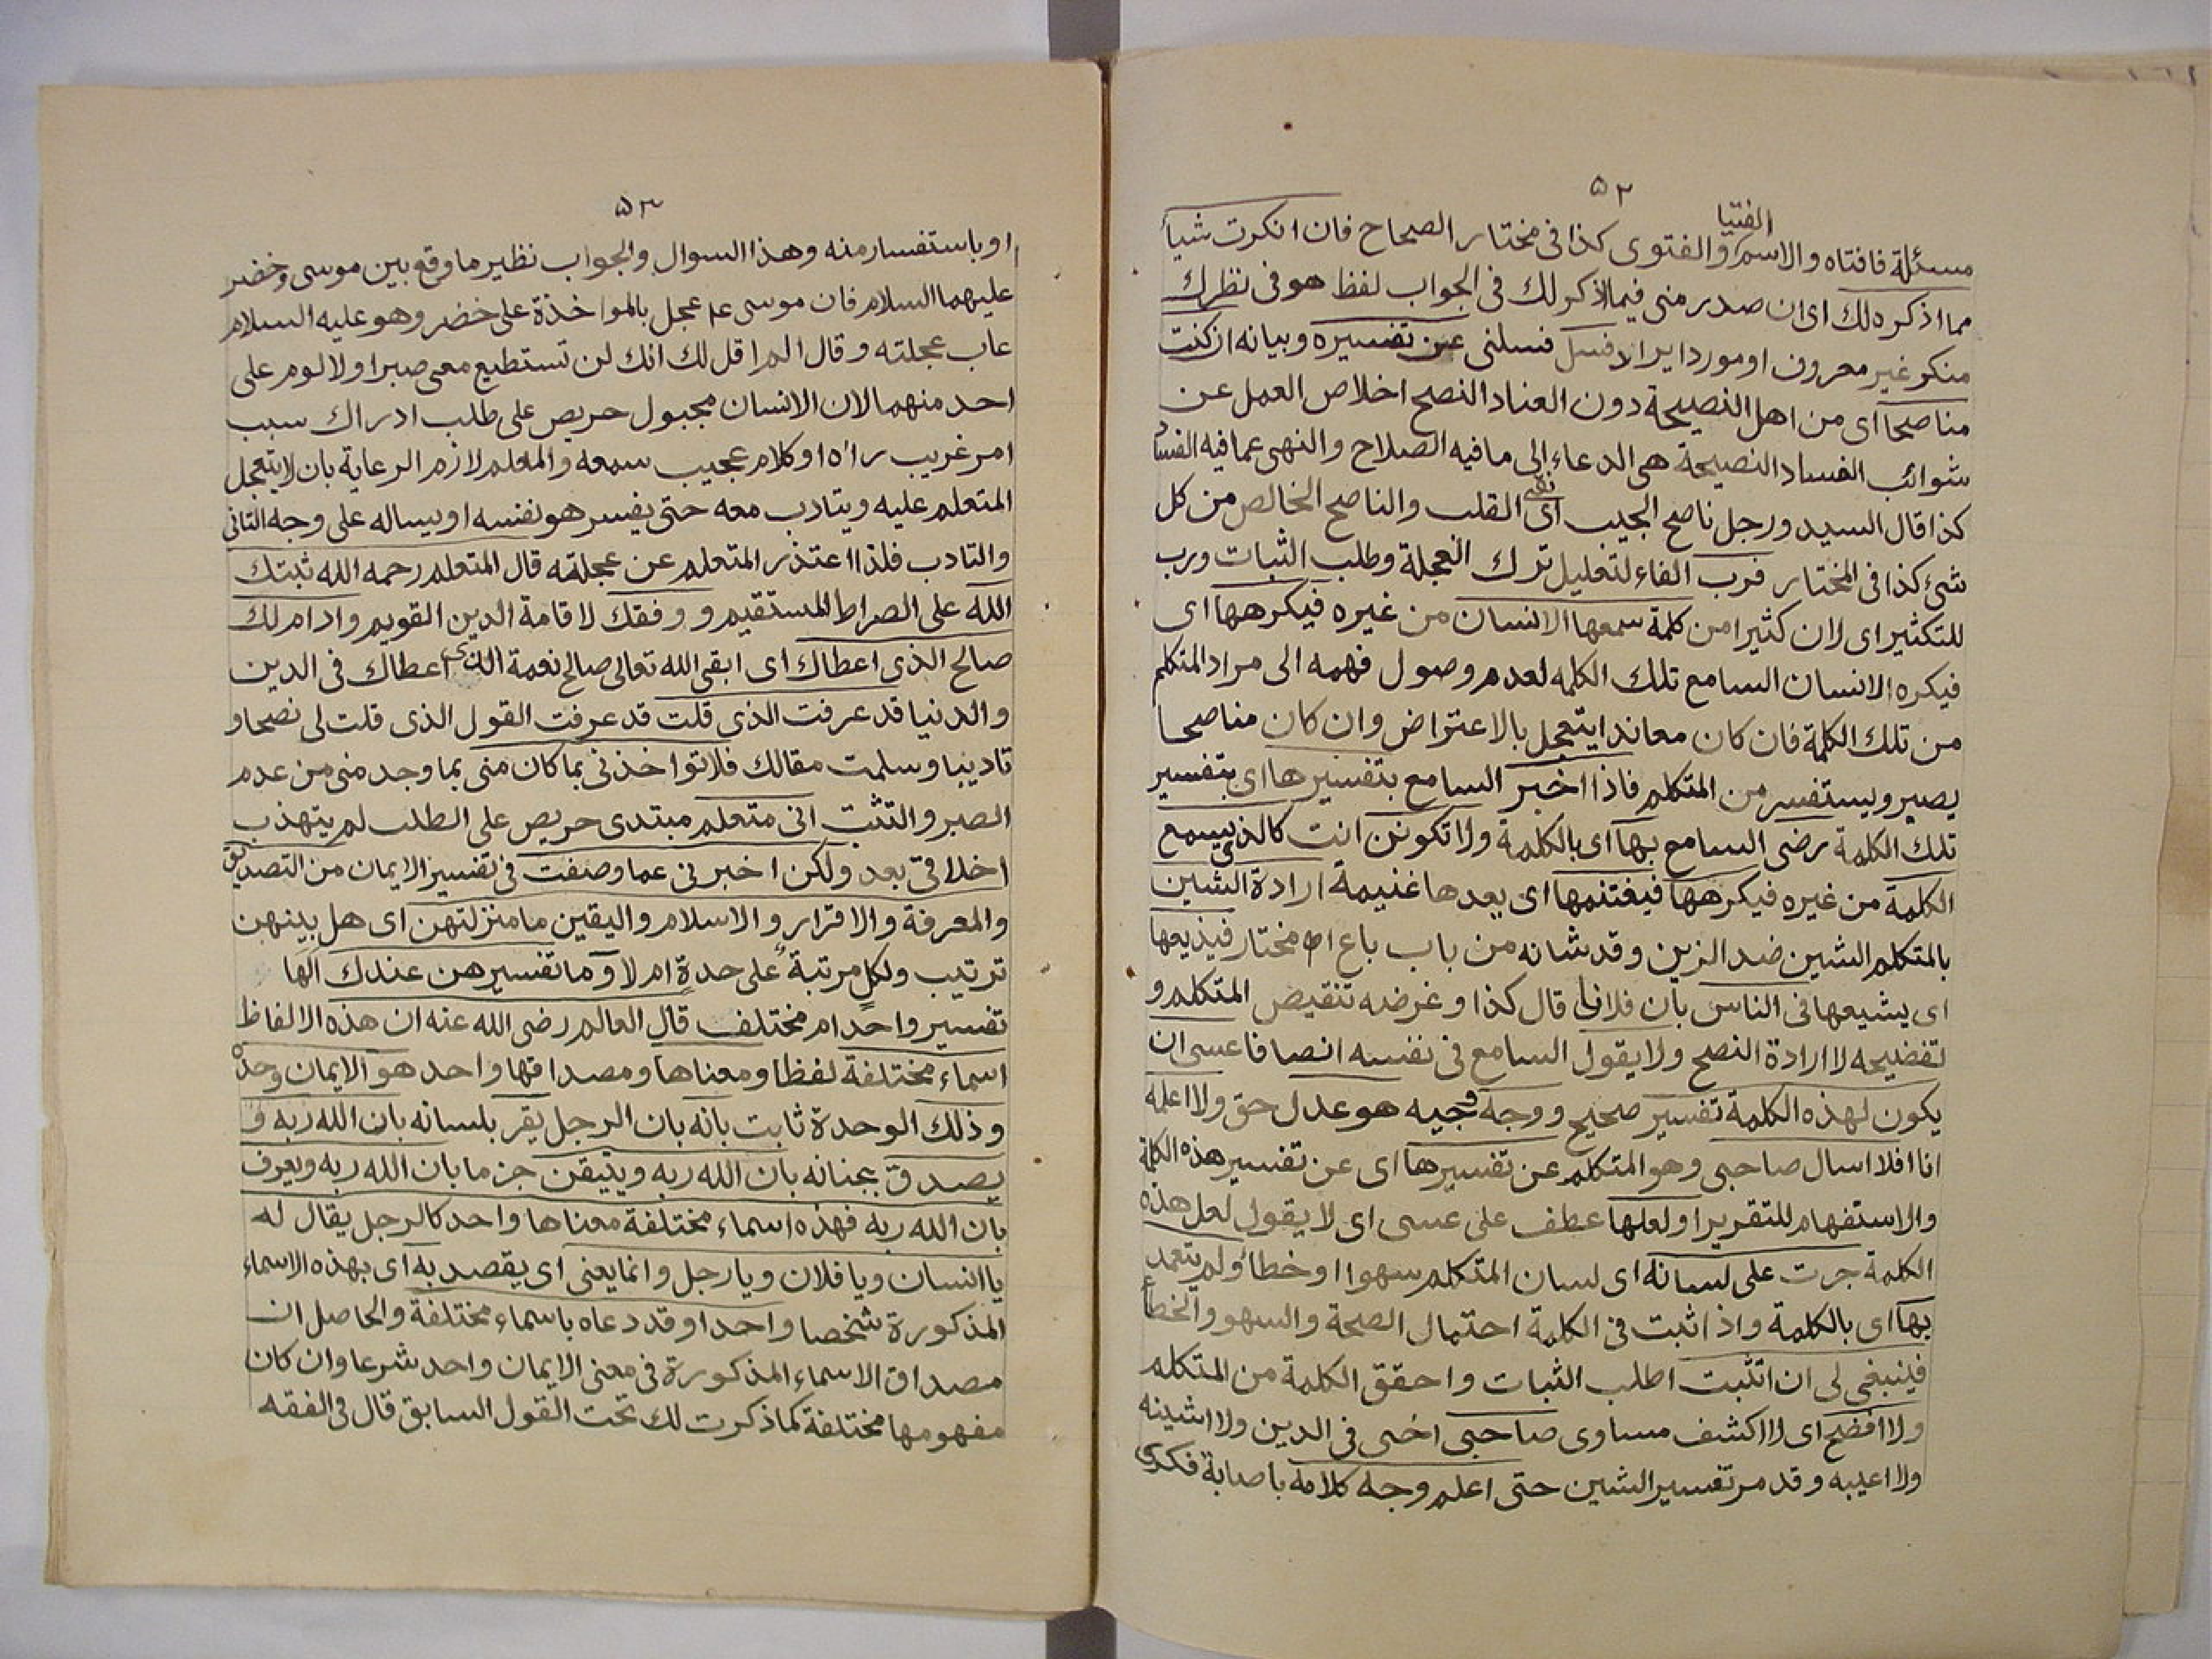 ٥٢
الفتيا
مسئلة فافتاه والاسم والفتوى كذا فى مختار الصحاح فان انكرت شيأ
مما اذكره لك اى ان صدر منى فيما اذكر لك فى الجواب لفظ هو فى نظرك
منكر غير معروف او مورد ايراد فسل فسلنى عن تفسيره وبيانه ان كنت
مناصحا اى من اهل النصيحة دون العناد النصح اخلاص العمل عن
شوائب الفساد النصيحة هى الدعاء الى ما فيه الصلاح والنهى عما فيه الفساد
كذا قال السيد ورجل ناصح الجيب اى نقى القلب والناصح الخالص من كل
شئ كذا فى المختار فرب الفاء لتعليل ترك العجلة وطلب الثبات ورب
للتكثير اى لان كثيرا من كلمة سمعها الانسان من غيره فيكرهها اى
فيكره الانسان السامع تلك الكلمه لعدم وصول فهمه الى مراد المتكلم
من تلك الكلمة فان كان معاندا يتعجل بالاعتراض وان كان مناصحا
يصبر ويستفسر من المتكلم فاذا اخبر السامع بتفسيرها اى بتفسير
تلك الكلمة رضى السامع بها اى بالكلمة ولا تكونن انت كالذى يسمع
الكلمة من غيره فيكرهها فيغتنمها اى يعدها غنيمة ارادة الشين
بالمتكلم الشين ضد الزين وقد شانه من باب باع اه مختار فيذيعها
اى يشيعها فى الناس بان فلانا قال كذا وغرضه تنقيص المتكلم و
تفضيحه لا ارادة النصح ولا يقول السامع فى نفسه انصافا عسى ان
يكون لهذه الكلمة تفسير صحيح ووجه وجيه هو عدل حق ولا اعلمه
انا افلا اسال صاحبى وهو المتكلم عن تفسيرها اى عن تفسير هذه الكلمة
والاستفهام للتقرير او لعلها عطف على عسى اى لا يقول لعل هذه
الكلمة جرت على لسانه اى لسان المتكلم سهوا او خطأ ولم يتعمد
بها اى بالكلمة واذا ثبت فى الكلمة احتمال الصحة والسهو والخطأ
فينبغى لى ان اتثبت اطلب الثبات واحقق الكلمة من المتكلم
ولا افضح اى لا اكشف مساوى صاحبى اخى فى الدين ولا اشينه
ولا اعيبه وقد مر تفسير الشين حتى اعلم وجه كلامه باصابة فكرى
٥٣
او باستفسار منه وهذا السوال والجواب نظير ما وقع بين موسى وخضر
عليهما السلام فان موسى عم عجل بالمواخذة على خضر وهو عليه السلام
عاب عجلته وقال الم اقل لك انك لن تستطيع معى صبرا ولا لوم على
احد منهما لان الانسان مجبول حريص على طلب ادراك سبب
امر غريب راه او كلام عجيب سمعه والمعلم لازم الرعاية بان لا يتعجل
المتعلم عليه ويتادب معه حتى يفسر هو نفسه او يساله على وجه التانى
والتادب فلذا اعتذر المتعلم عن عجلته قال المتعلم رحمه الله ثبتك
الله على الصراط المستقيم ووفقك لاقامة الدين القويم وادام لك
صالح الذى اعطاك اى ابقى الله تعالى صالح نعمة الذى اعطاك فى الدين
والدنيا قد عرفت الذى قلت قد عرفت القول الذى قلت لى نصحا و
تاديبا وسلمت مقالك فلا تواخذنى بما كان منى بما وجد منى من عدم
الصبر والتثبت انى متعلم مبتدى حريص على الطلب لم يتهذب
اخلاقى بعد ولكن اخبرنى عما وصفت فى تفسير الايمان من التصديق
والمعرفة والاقرار والاسلام واليقين ما منزلتهن اى هل بينهن
ترتيب ولكل مرتبة على حدة ام لا وما تفسيرهن عندك الها
تفسير واحد ام مختلف قال العالم رضى الله عنه ان هذه الالفاظ
اسماء مختلفة لفظا ومعناها ومصداقها واحد هو الايمان وحده
وذلك الوحدة ثابت بانه بان الرجل يقر بلسانه بان الله ربه و
يصدق بجنانه بان الله ربه ويتيقن جزما بان الله ربه ويعرف
بان الله ربه فهذه اسماء مختلفة معناها واحد كالرجل يقال له
يا انسان ويا فلان ويا رجل وانما يعنى اى يقصد به اى بهذه الاسماء
المذكورة شخصا واحدا وقد دعاه باسماء مختلفة والحاصل ان
مصداق الاسماء المذكورة فى معنى الايمان واحد شرعا وان كان
مفهومها مختلفة كما ذكرت لك تحت القول السابق قال فى الفقه